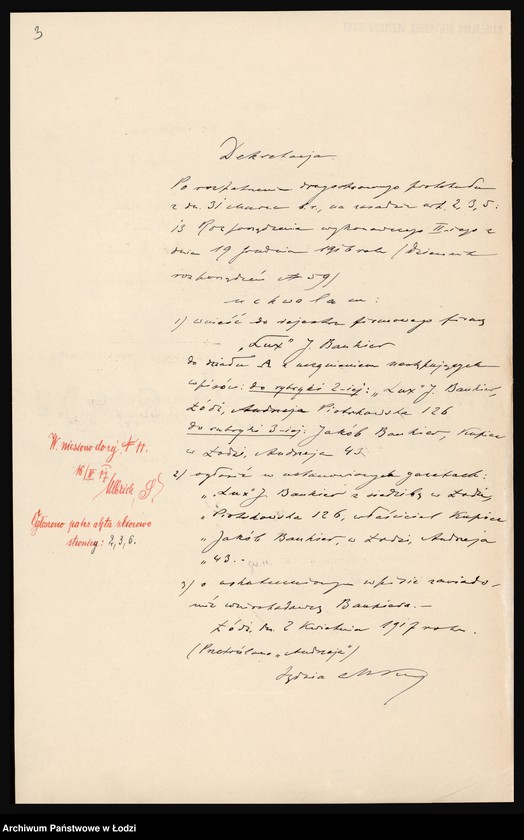 3
Dekretacja.
Po rozpatrzeniu drugostronnego protokołu
z dn. 31 marca b.r., na zasadzie art. 2, 3, 5 i
13 Rozporządzenia wykonawczego II-iego z
dnia 19 grudnia 1916 roku (Dziennik
rozporządzeń № 59)
uchwalam:
1) wnieść do rejestru firmowego firmę
„Lux" J. Bankier
do działu A z uczynieniem następujących
wpisów: do rubryki 2-iej: „Lux" J. Bankier,
Łódź, Andrzeja Piotrkowska 126
do rubryki 3-iej: Jakób Bankier, Kupiec
w Łodzi, Andrzeja 43.
2) ogłosić w ustanowionych gazetach:
„Lux" J. Bankier z siedzibą w Łodzi,
„Piotrkowska 126, właściciel Kupiec
„Jakób Bankier, w Łodzi, Andrzeja
„43.-
3) o uskutecznionym wpisie zawiado-
mić wnioskodawcę Bankiera.-
Łódź, dn. 2 Kwietnia 1917 roku.
(Przekreślono „Andrzeja")
Sędzia
Wniesiono do rej.
16/IV 17
Ulbrich
Ogłoszono patrz akta zbiorowe
stronicy: 2, 3, 6.
Archiwum Państwowe w Łodzi